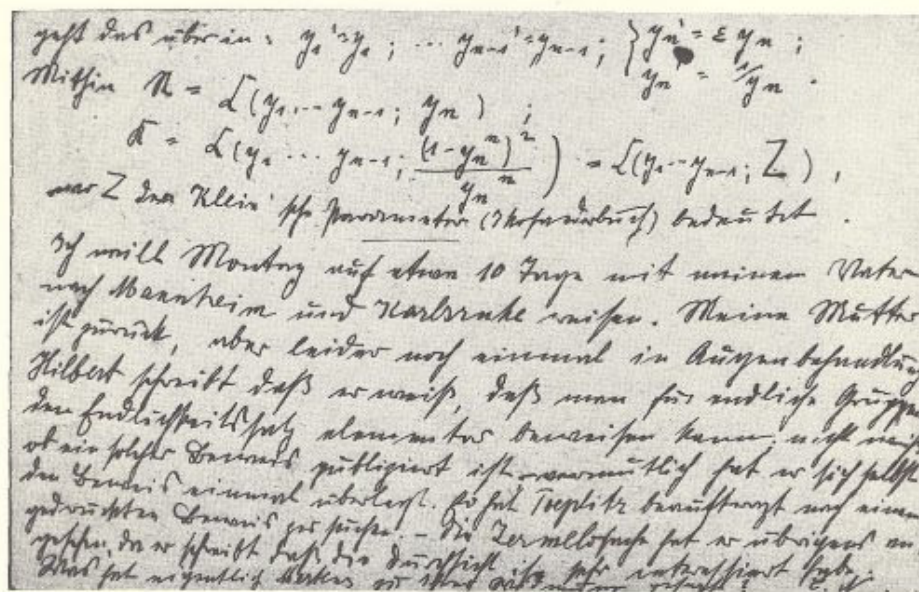 geht das über in: y₁' = y₁ ; ... yₙ₋₁' = yₙ₋₁ ; { yₙ' = ε yₙ ; yₙ' = 1/yₙ .
Mithin R = L(y₁ ... yₙ₋₁ ; yₙ) ;
K = L(y₁ ... yₙ₋₁ ; (1 - yₙⁿ)² / yₙⁿ) = L(y₁ ... yₙ₋₁ ; Z) ,
wo Z den Klein'sche Parameter (Ikosaederbuch) bedeutet .
Ich will Montag auf etwa 10 Tage mit meinem Vater
nach Mannheim und Karlsruhe reisen. Meine Mutter
ist zurück, aber leider noch einmal in Augenbehandlung
Hilbert schreibt daß er weiß, daß man für endliche Gruppen
den Endlichkeitssatz elementar beweisen kann; nicht
ob ein solcher Beweis publiziert ist vermutlich hat er sich selbst
den Beweis einmal überlegt. Er hat Toeplitz beauftragt nach einem
gedruckten Beweis zu suchen. - Die hat er übrigens
da er schreibt daß die Durchsicht sehr interessiert habe.
Was hat eigentlich